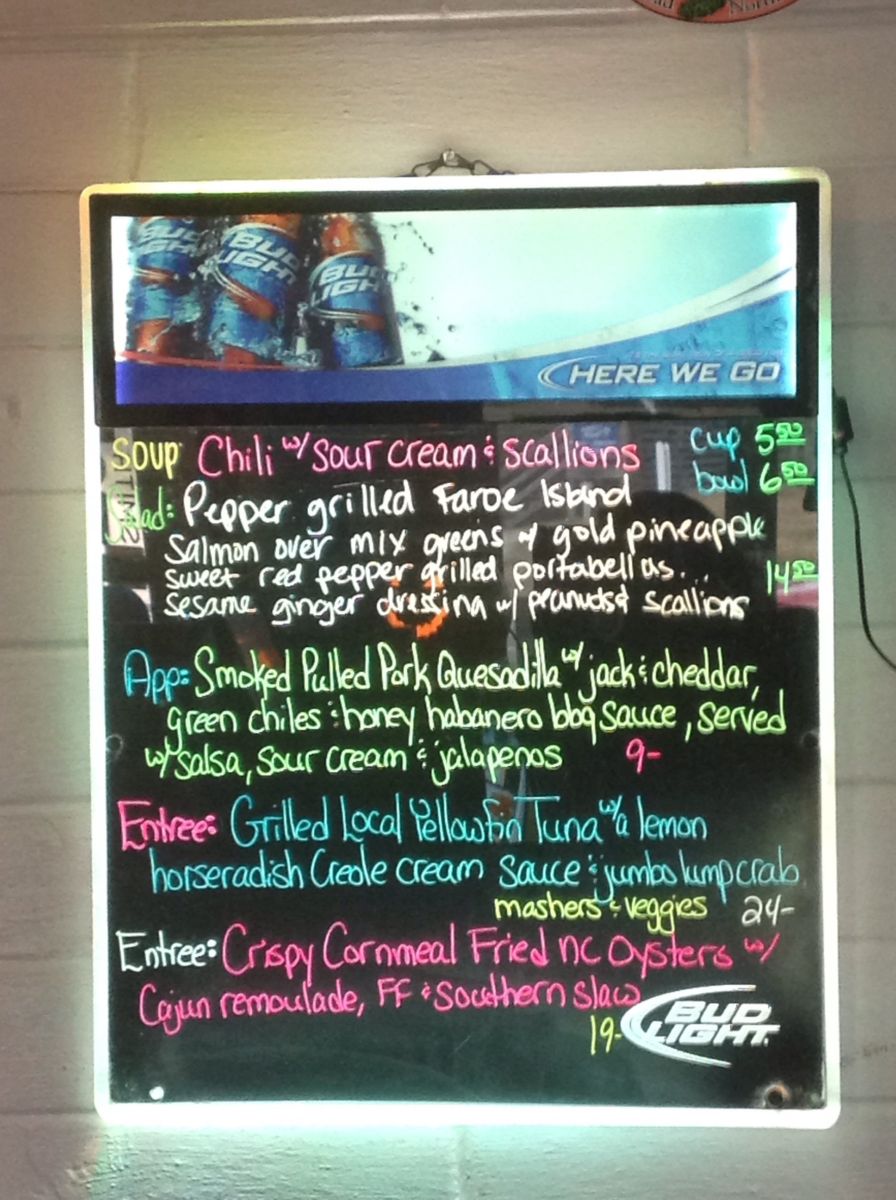 North
BUD LIGHT
BUD LIGHT
BUD LIGHT
HERE WE GO
SOUP Chili w/ sour cream & scallions cup 5.50
bowl 6.50
Salad: Pepper grilled Faroe Island
Salmon over mix greens w/ gold pineapple
sweet red pepper grilled portabellas... 14.50
sesame ginger dressing w/ peanuts & scallions
App: Smoked Pulled Pork Quesadilla w/ jack & cheddar,
green chiles & honey habanero bbq sauce, served
w/ salsa, sour cream & jalapenos 9-
Entree: Grilled Local Yellowfin Tuna w/a lemon
horseradish Creole cream sauce & jumbo lump crab
mashers & veggies 24-
Entree: Crispy Cornmeal Fried NC Oysters w/
Cajun remoulade, FF & Southern Slaw
19-
BUD LIGHT